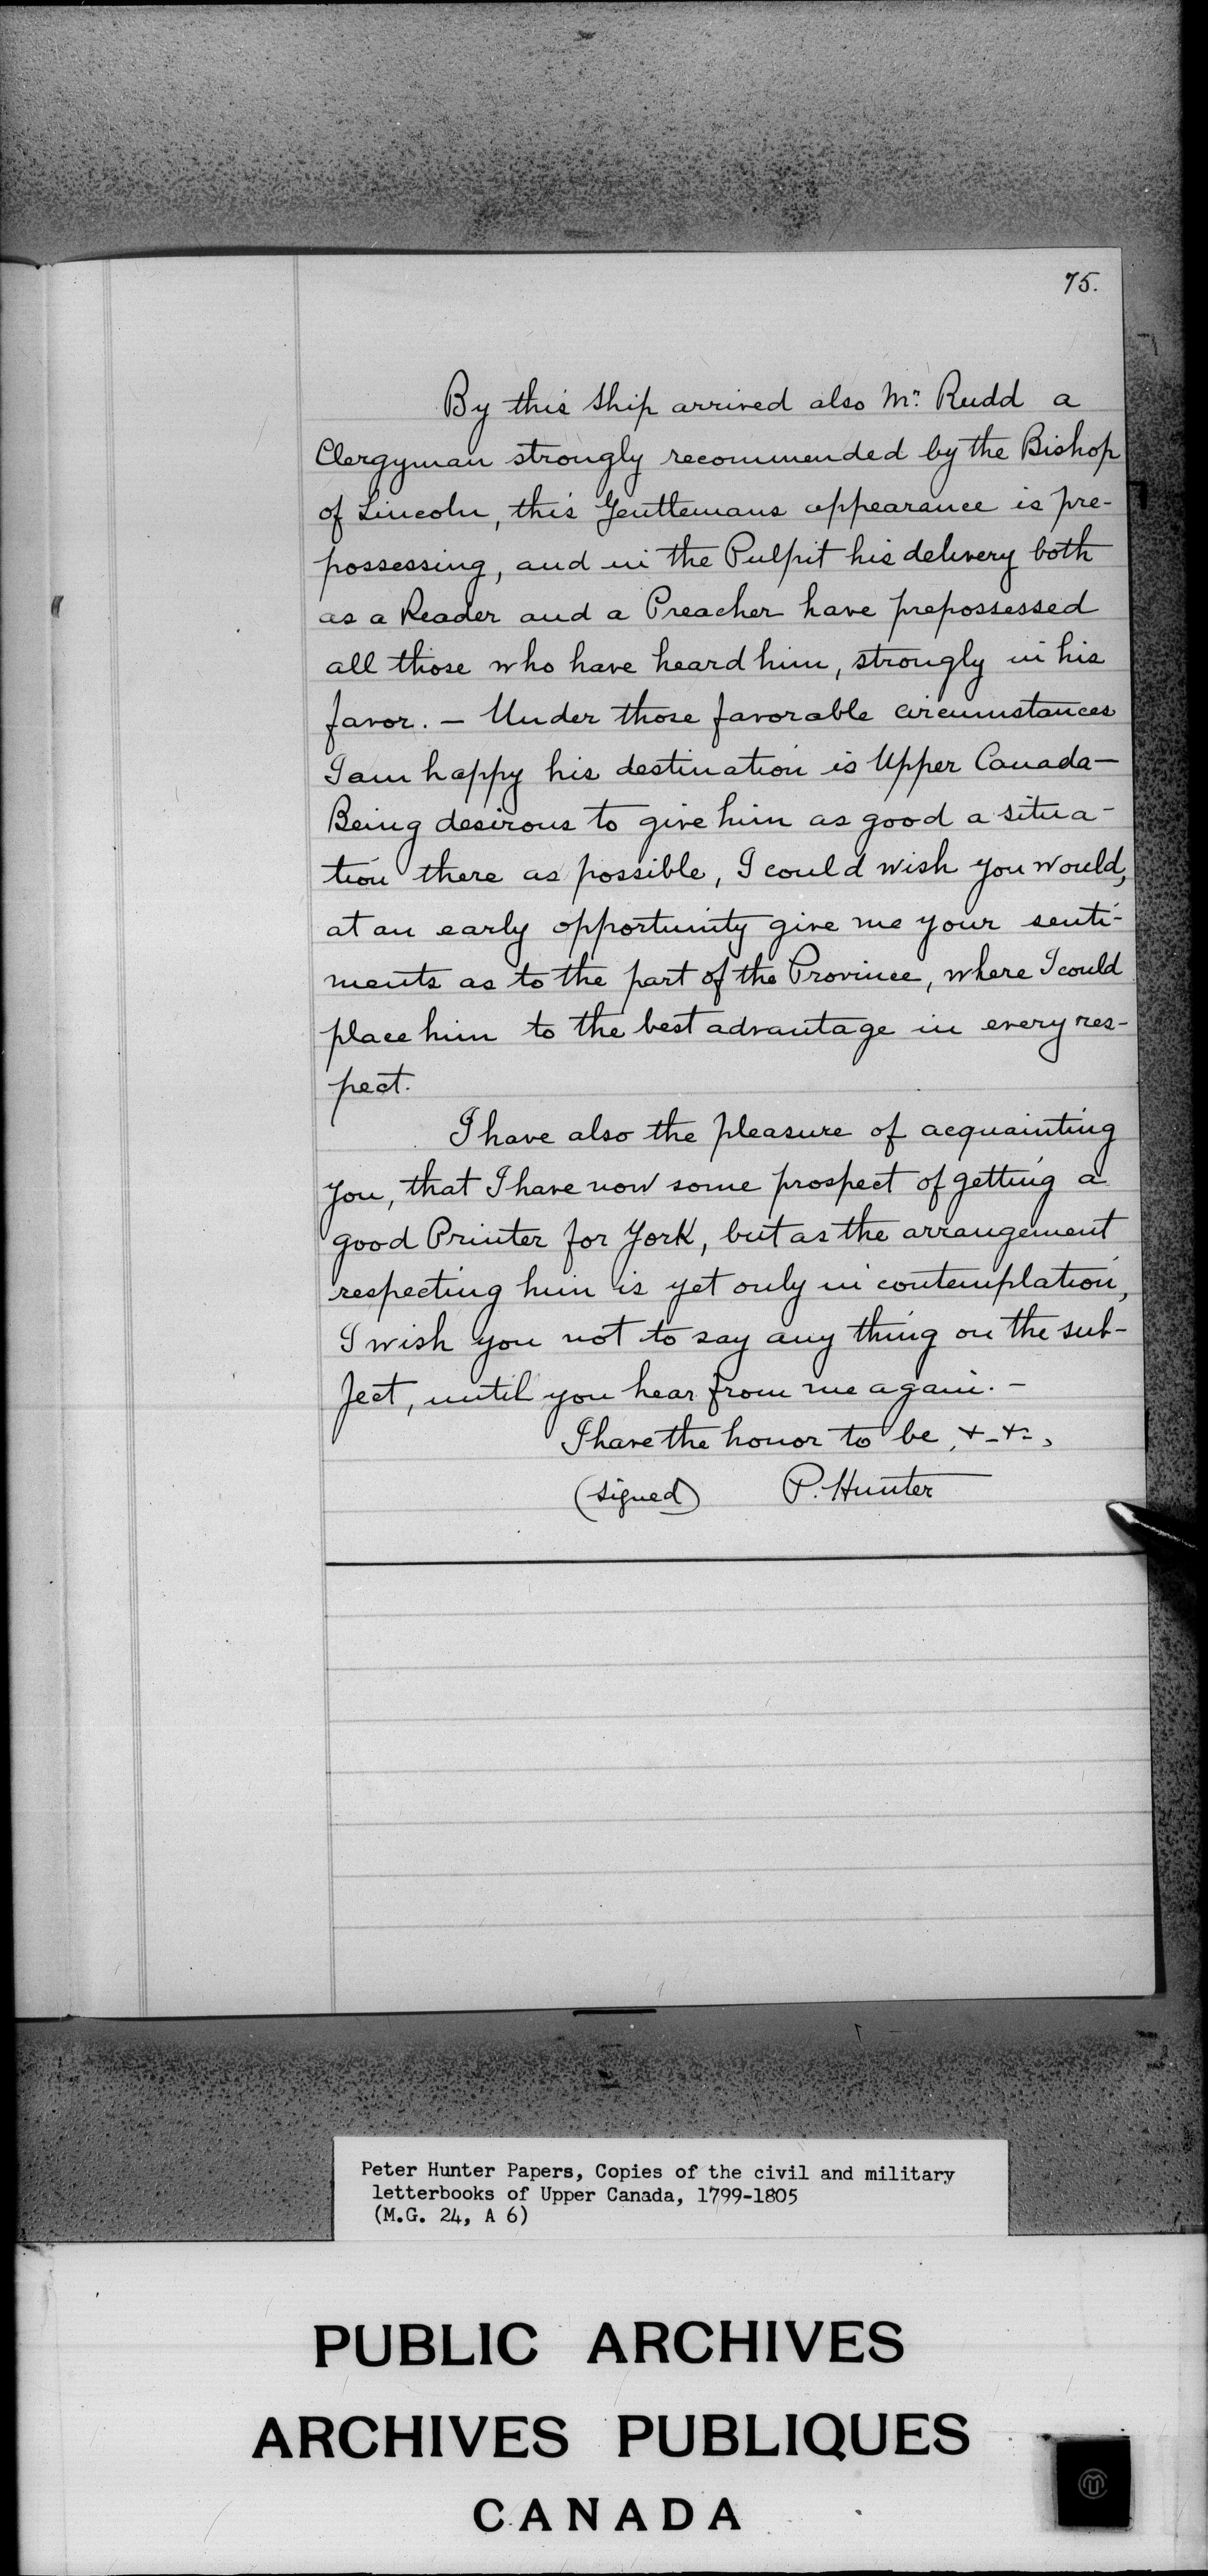 75.
By this Ship arrived also Mr. Rudd a
Clergyman strongly recommended by the Bishop
of Lincoln, this Gentlemans appearance is pre-
possessing, and in the Pulpit his delivery both
as a Reader and a Preacher have prepossessed
all those who have heard him, strongly in his
favor. — Under those favorable circumstances
I am happy his destination is Upper Canada—
Being desirous to give him as good a situa-
tion there as possible, I could wish you would,
at an early opportunity give me your senti-
ments as to the part of the Province, where I could
place him to the best advantage in every res-
pect.
I have also the pleasure of acquainting
you, that I have now some prospect of getting a
good Printer for York, but as the arrangement
respecting him is yet only in contemplation,
I wish you not to say any thing on the sub-
ject, until you hear from me again. —
I have the honor to be, &-&-,
(signed) P. Hunter
Peter Hunter Papers, Copies of the civil and military
letterbooks of Upper Canada, 1799-1805
(M.G. 24, A 6)
PUBLIC ARCHIVES
ARCHIVES PUBLIQUES
CANADA